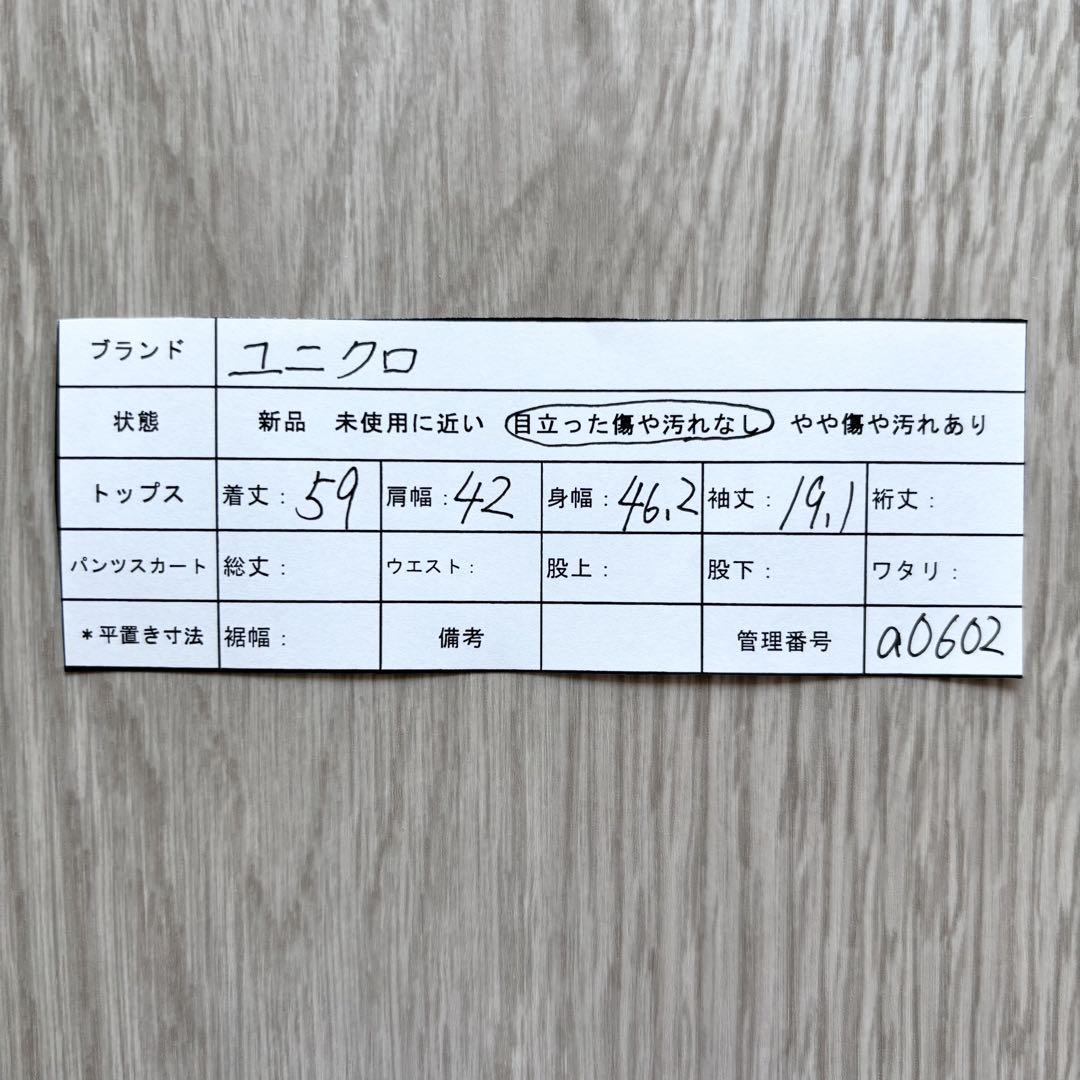 ブランド ユニクロ
状態 新品 未使用に近い 目立った傷や汚れなし やや傷や汚れあり
トップス 着丈: 59 肩幅: 42 身幅: 46.2 袖丈: 19.1 裄丈:
パンツスカート 総丈: ウエスト: 股上: 股下: ワタリ:
*平置き寸法 裾幅: 備考 管理番号 a0602